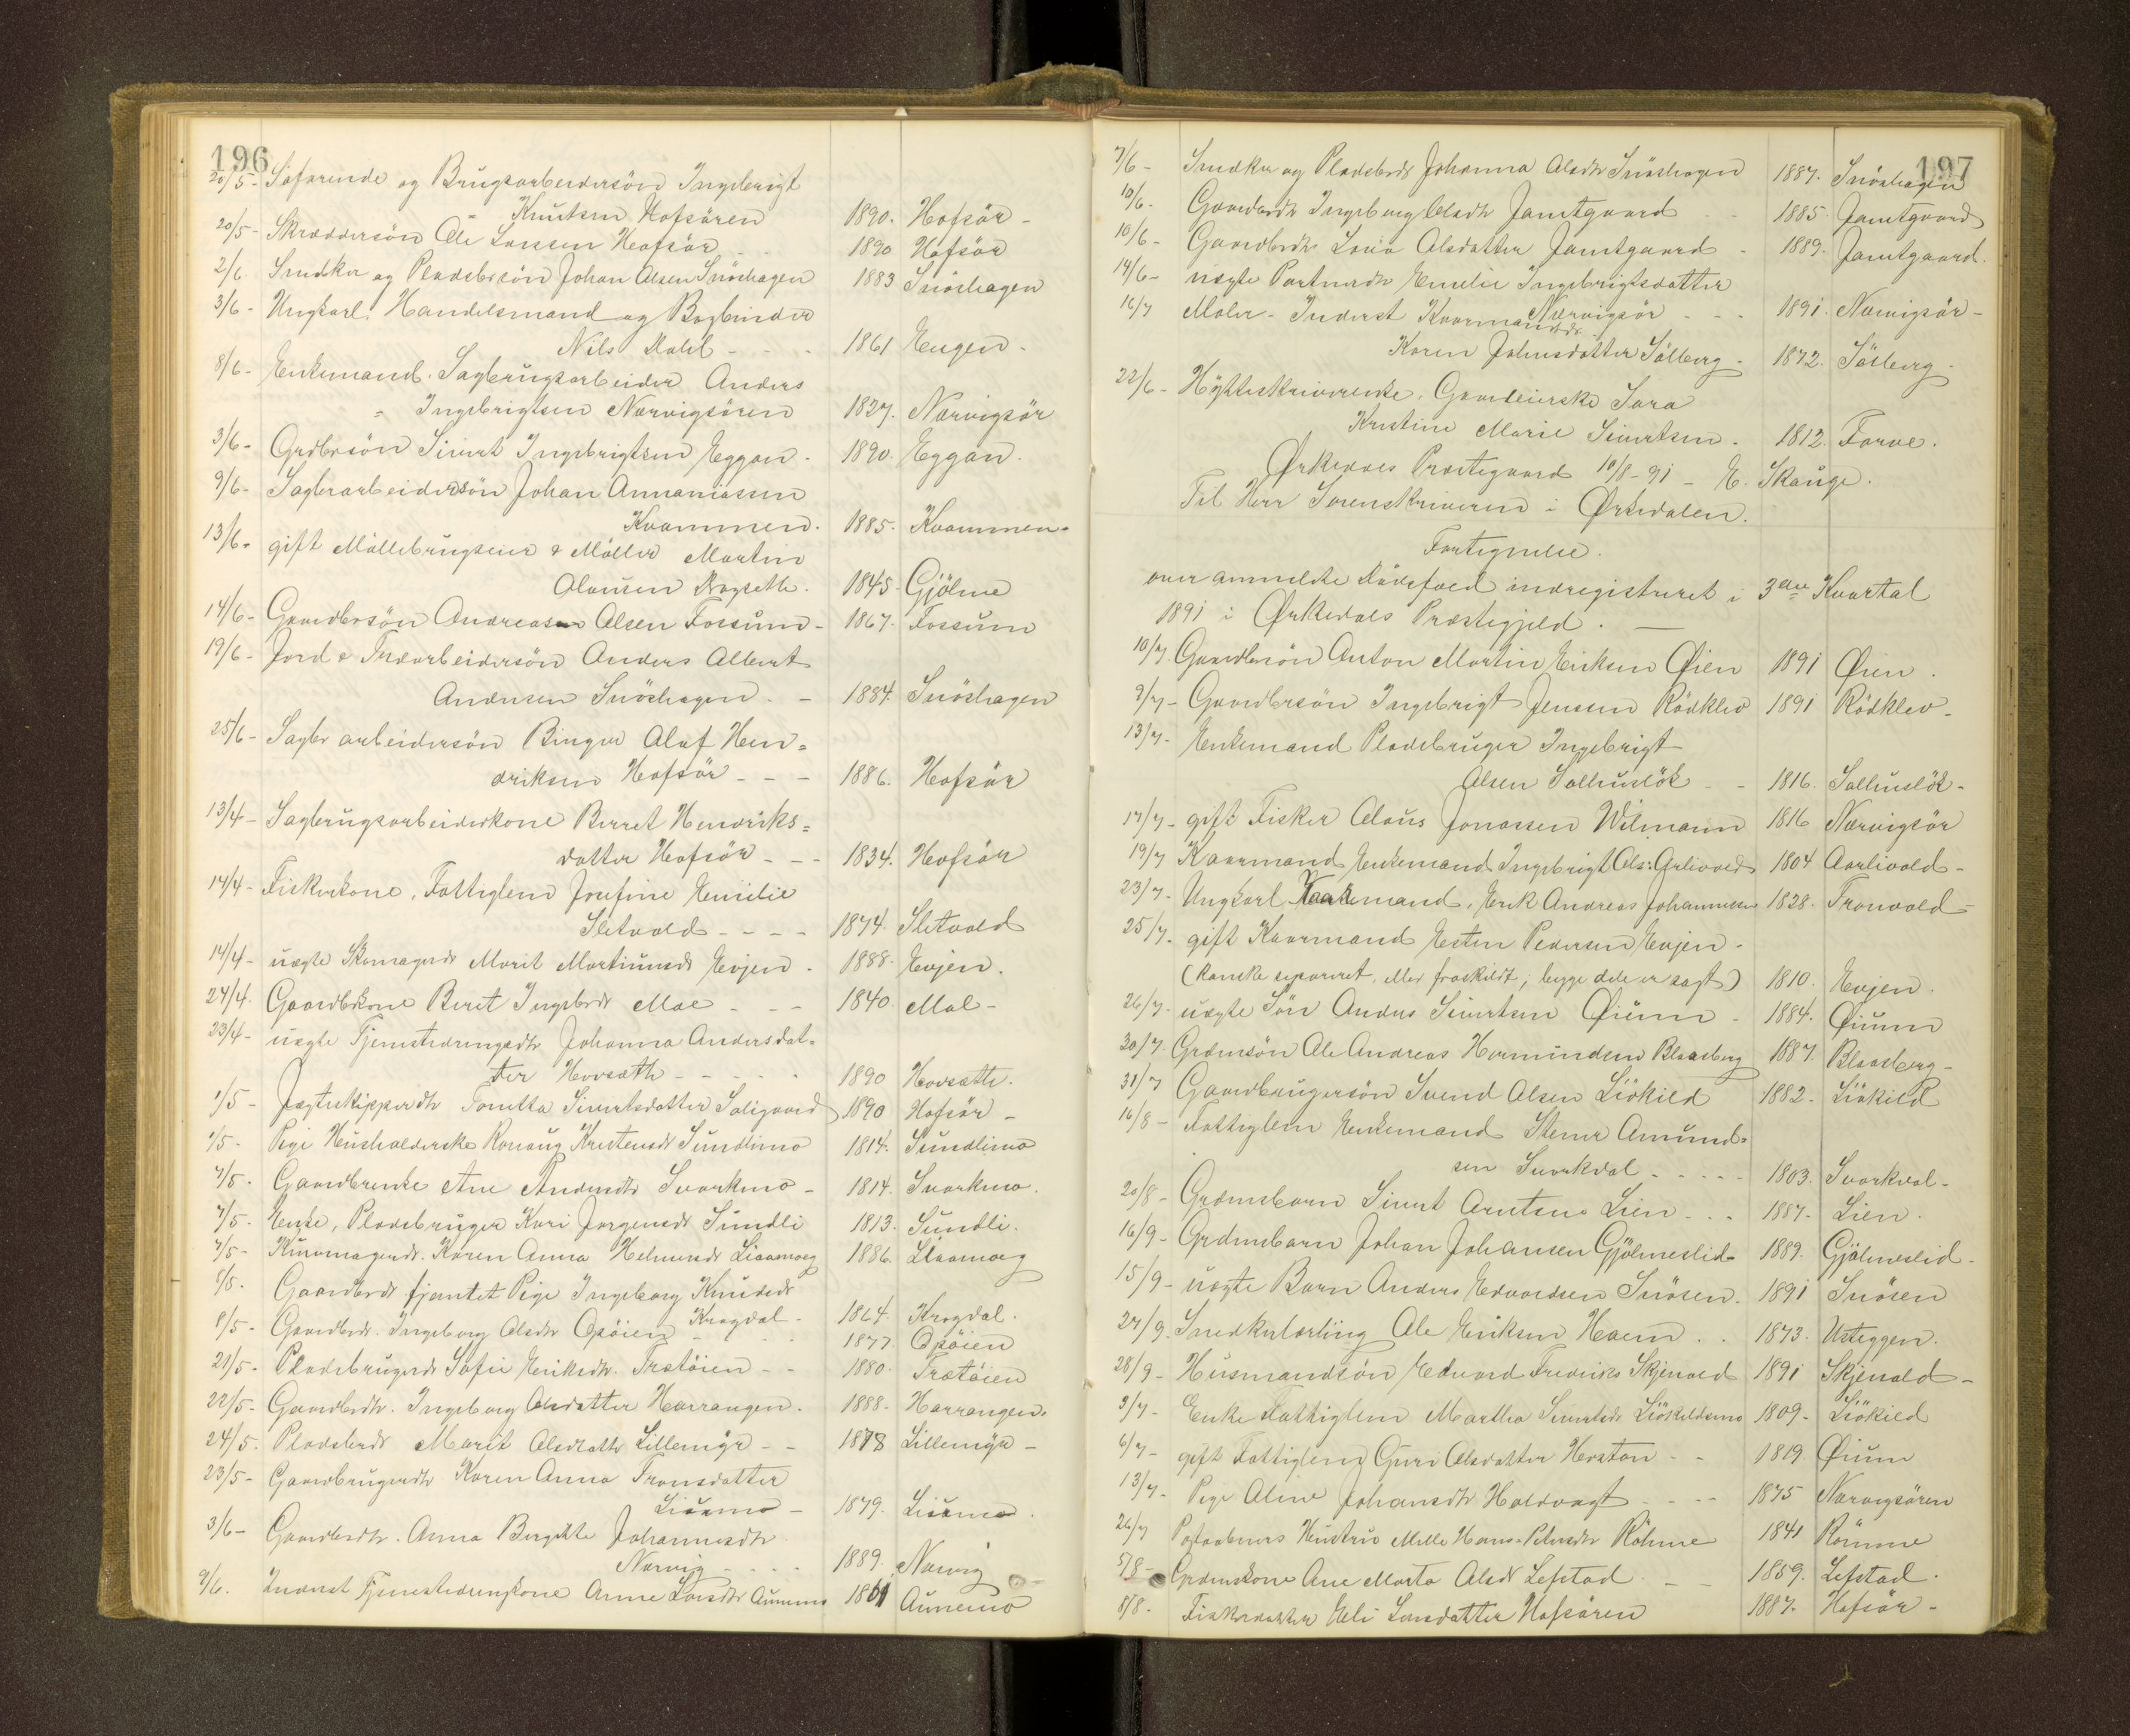 196
20/5 - Søfarende og Brugsarbeidersøn Ingebrigt
Knutsen Hofsøren 1890. Hofsør -
20/5 - Skræddersøn Ole Larssen Hofsør 1890 Hofsør
2/6. Snedker og Pladsbrsön Johan Olsen Snöshagen 1883 Snöshagen
3/6 - Ungkarl. Handelsmand og Bogbinder
Nils Dahl - - - 1861 Engen -
8/6 - Enkemand. Sagbrugsarbeider Anders
= Ingebrigtsen Nærvigsören 1827. Nærvigsör
3/6 - Grdbrsön Sivert Ingebrigtsen Eggan - 1890. Eggan.
9/6 - Sagbrarbeidersön Johan Annaniassen
Kvammen. 1885. Kvammen -
13/6 - gift Möllebrugseier & Möller Martin
Olausen Bagseth. 1845 - Gjölme
14/6 - Gaardbrsön Andreas Olsen Fossum - 1867. Fossum
19/6 - Jord & Træarbeidersön Anders Albert
Andersen Snöshagen - - 1884. Snöshagen
25/6 - Sagbr arbeidersön Birger Olaf Hen=
driksen Hofsör - - - 1886. Hofsör
13/4 - Sagbrugsarbeiderkone Berret Hendriks=
datter Hofsör - - - 1834. Hofsör
14/4 - Fiskerkone, Fattiglem Josefine Emilie
Sletvold - - - - 1874. Sletvold
14/4 - uægte Skomagerdr Marit Martinusdr Evjen - 1888. Evjen.
24/4. Gaardbrkone Beret Ingebrdr Moe - - - 1840. Moe -
23/4 - uægte Tjenestedrengsdtr Johanna Andersdat=
ter Hovsæth - - - - - 1890 Hovsæth.
1/5 - Jægteskipperdtr Tonetta Sivertsdatter Soligaard 1890 Hofsör -
1/5 - Pige Husholderske Ronaug Kristensdr Sundlimo 1814. Sundlimo
7/5 - Gaardbrenke Ane Andersdtr Svorkmo - 1814. Svorkmo.
7/5 - Enke, Pladsbruger Kari Jørgensdr Sundli 1813. Sundli.
7/5 - Karen Anna Helmersdr 1886.
8/5. Gaardbrdr fjantet Pige Ingeborg Knudsdr
Krogdal - 1864. Krogdal.
8/5 - Gaardbrdr. Ingeborg Olsdtr Opöien - - - 1877. Opöien
21/5 - Pladsbrugerdr Sofie Eriksdtr. Trætöien - - 1880. Trætöien
22/5 - Gaardbrdtr. Ingeborg Olsdatter Harrangen. 1888. Harrangen.
24/5. Pladsbrdr Marit Olsdatter Lillemyr - - 1878 Lillemyr -
23/5 - Gaardbrugerdtr Karen Anna Tronsdatter
Lisamo - 1879. Lisamo.
3/6 - Gaardbrdtr. Anna Birgitte Johannesdtr
Nærvig - - - - 1889. Nærvig
9/6. Inderst Tjenestedrengkone Anne Larsdtr Aunemo 1861 Aunemo
197
7/6 - Snedker og Pladsbrdr Johanna Olsdtr Snöshagen 1887. Snöshagen
10/6 - Gaardbrdr Ingeborg Olsdtr Jamtgaard - - 1885. Jamtgaard
10/6 - Gaardbrdr Lovise Olsdatter Jamtgaard - 1889. Jamtgaard.
14/6 - uægte Emelie Ingebrigtsdatter
Nærvigsör - - - 1891. Nærvigsör -
16/7 Maler - Inderst Kaarmandsdr
Karen Johnsdatter Sölberg - 1872. Sölberg -
22/6 - Hytteskriverenke, Gaardeierske Sara
Kristine Marie Sivertsen - 1812. Forve.
Ørkedals Præstegaard 10/8 - 91 - E. Skauge.
Til Herr Sorenskriveren i Ørkedalen.
Fortegnelse.
over anmeldte Dödsfald indregistreret i 3die Kvartal
1891 i Ørkedals Præstegjeld. -
10/7 Gaardbrsön Anton Martin Eriksen Øien 1891 Øien.
9/7 - Gaardbrsön Ingebrigt Jenssen Rödklev 1891 Rödklev -
13/7 - Enkemand Pladsbruger Ingebrigt
Olsen Solhuslök - - 1816. Solhuslök -
17/7 - gift Fisker Olaus Jonassen Wilmann 1816 Nærvigsör
19/7 Kaarmand Enkemand Ingebrigt Ols: Aarlivold 1804 Aarlivold -
23/7 - Ungkarl Kaarmand, Erik Andreas Johannessen 1828. Tronvold -
25/7 - gift Kaarmand Esten Pedersen Evjen -
(Kanske separeret, eller fraskildt; begge dele er sagt) 1810. Evjen.
26/7 - uægte Sön Anders Sivertsen Øium - 1884. Øium
30/7. Grdmsön Ole Andreas Hermundsen Blaasberg 1887. Blaasberg -
31/7 Gaardbrugersön Svend Olsen Liökild 1882. Liökild
16/8 - Fattiglem Enkemand Stener Amund=
sen Svorkdal - - - - - 1803. Svorkdal -
20/8 - Grdmsbarn Sivert Arntsen Lien - - - 1887. Lien.
16/9 - Grdmsbarn Johan Johansen Gjölmeslid - 1889. Gjölmeslid -
15/9 - uægte Barn Anders Edvardsen Snösen - 1891 Snösen
27/9. Snedkerlærling Ole Eriksen Hoem - - 1873. Usteggen.
28/9 - Husmandsön Edvard Fredriks Skjenald 1891 Skjenald -
3/7 - Enke Fattiglem Martha Sivertsdr Liökildsmo 1809 - Liökild
6/7 - gift Fattiglem Guri Olsdatter Herston - - 1819. Øium
13/7 - Pige Aline Johansdtr Holdvagt - - - - 1875 Nærvigsören
26/7 Postaabners Hustru Mille Hans-Petersdtr Röhme 1841 Römme
5/8 - Grdmskone Ane Marta Olsdr Lefstad - - - 1859. Lefstad.
8/8 - Fiskerdatter Eli Larsdatter Hofsören 1887. Hofsör -